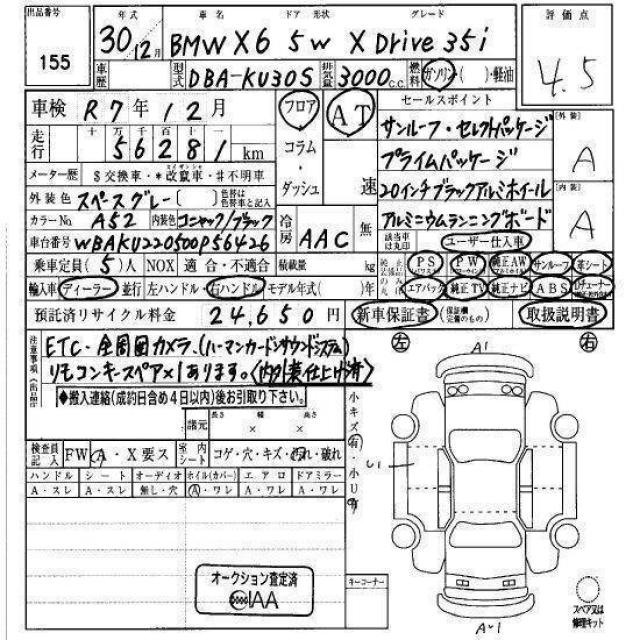 出品番号
155
年式 車名 ドア 形状 グレード
30年12月 BMW X6 5W X Drive 35i
評価点
4.5
車歴 型式 DBA-KU30S 排気量 3000 c.c. 燃料 ガソリン ( )・軽油
車検 R7年12月
フロア AT
コラム・ダッシュ 速
セールスポイント
サンルーフ・セレクトパッケージ
プライムパッケージ
20インチブラックアルミホイール
アルミニウムランニングボード
[外装]
A
[内装]
A
走行 十万千百十一
56281 km
メーター歴 $交換車・*改竄車・#不明車
外装色 スペースグレー ( ) 色替は色替車と記入
カラーNo. A52 内装色 コニャック/ブラック
冷房 AAC 無
該当車は丸印 ユーザー仕入車
車台番号 WBAKU220500P56426
乗車定員 (5)人 NOX 適合・不適合 積載量 kg
PS PW 純正AW サンルーフ 革シート
輸入車 ディーラー 並行 左ハンドル・右ハンドル モデル年式( )年
エアバック 純正TV 純正ナビ ABS
預託済リサイクル料金 24,650円
新車保証書 (保証欄完備のもの) 取扱説明書
注意事項
ETC・全周囲カメラ、(ハーマンカードンサウンドシステム)
リモコンキースペア×1あります。〈内外装仕上げ済〉
◆搬入連絡(成約日含め4日以内)後お引取り下さい。
諸元 長さ 幅 高さ
× ×
検査員記入 FW A・X要ス 室内シート コゲ・穴・キズ・汚れ・破れ
ハンドル シート オーディオ ホイル(カバー) エアロ ドアミラー
A・スレ A・スレ 無し・穴 A・ワレ A・ワレ A・ワレ
小キズ有・小U有
オークション査定済
IAA
キーコーナー
左 右
A1
U1
A1
スペア又は修理キット